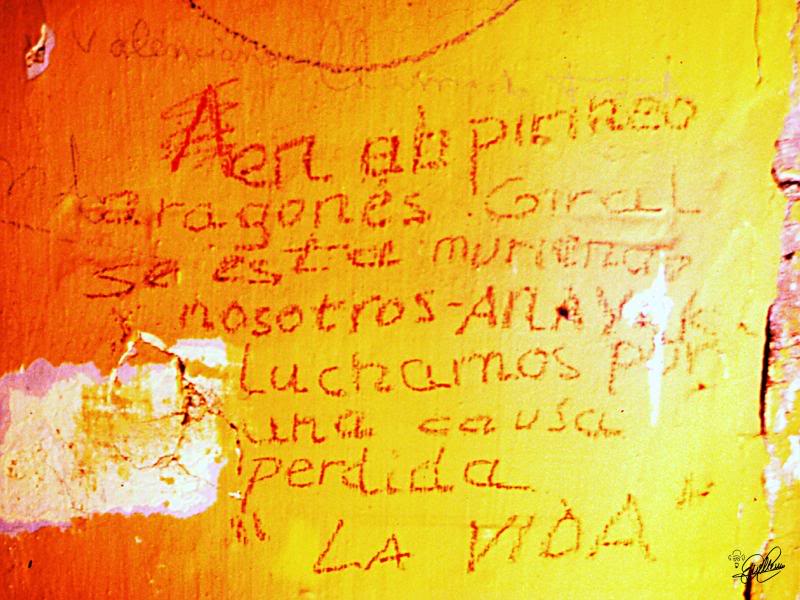 Valenciana
A en el pirineo
aragonés Giral
se esta muriendo
y nosotros - ANA Y
luchamos por
una causa
perdida
" LA VIDA "